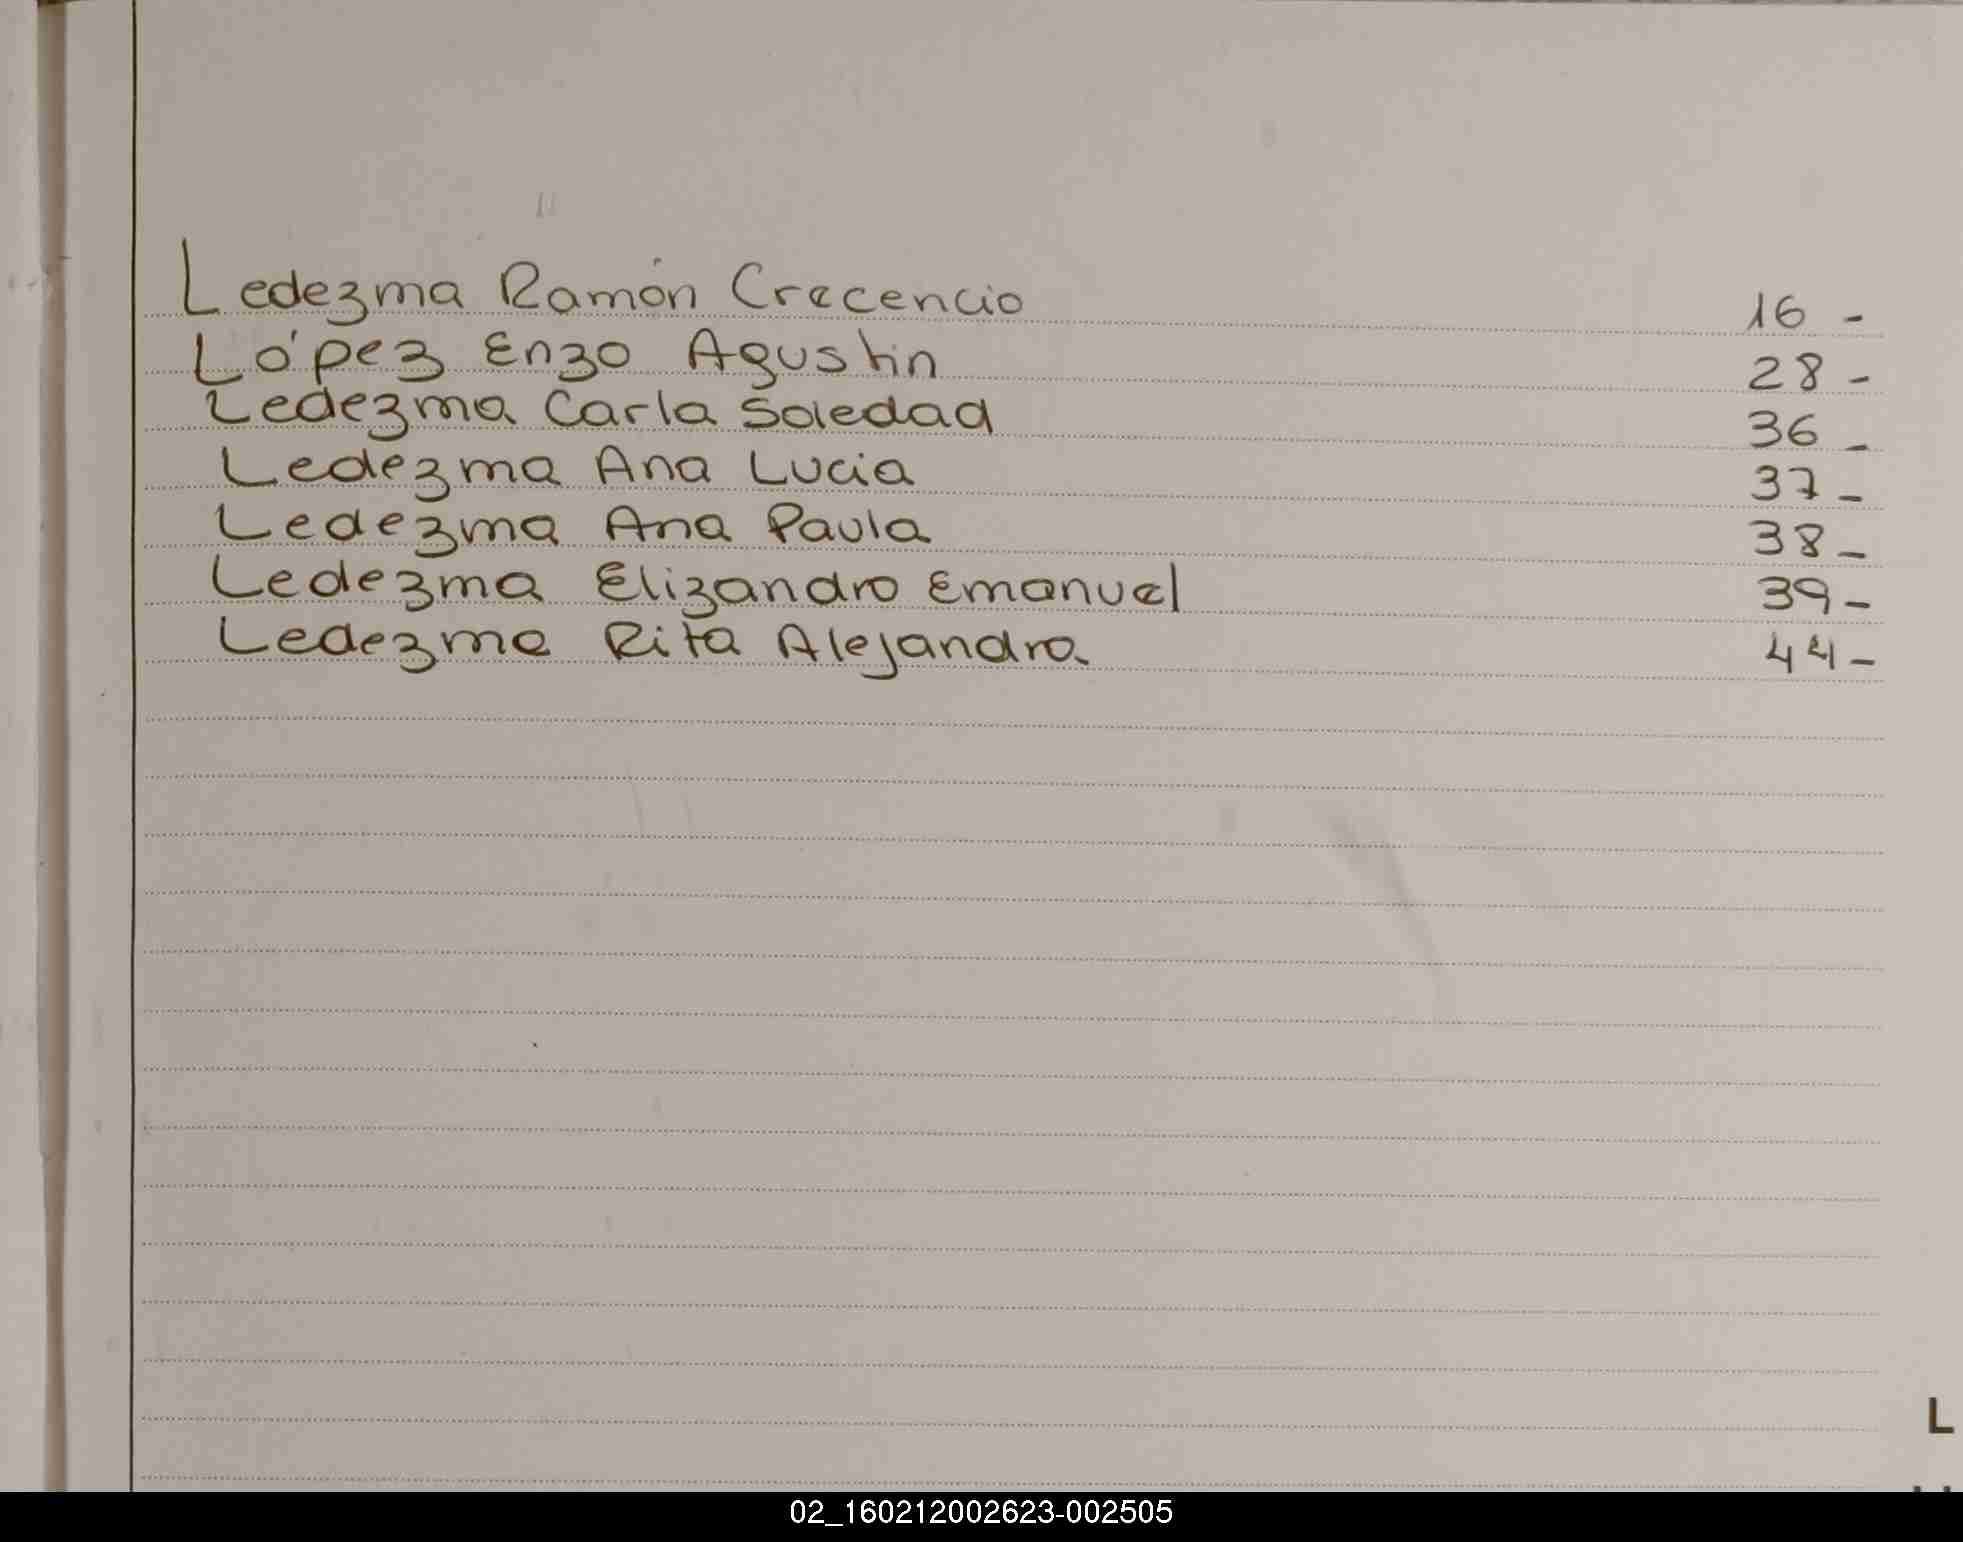 Ledezma Ramón Crecencio 16 -
López Enzo Agustin 28 -
Ledezma Carla Soledad 36 -
Ledezma Ana Lucia 37 -
Ledezma Ana Paula 38 -
Ledezma Elizandro Emanuel 39 -
Ledezma Rita Alejandra 44 -
L
02_160212002623-002505